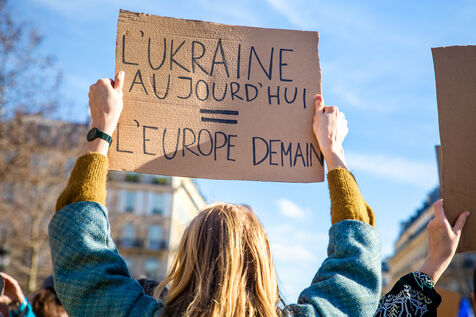 L'UKRAINE
AUJOURD'HUI
=
L'EUROPE DEMAIN